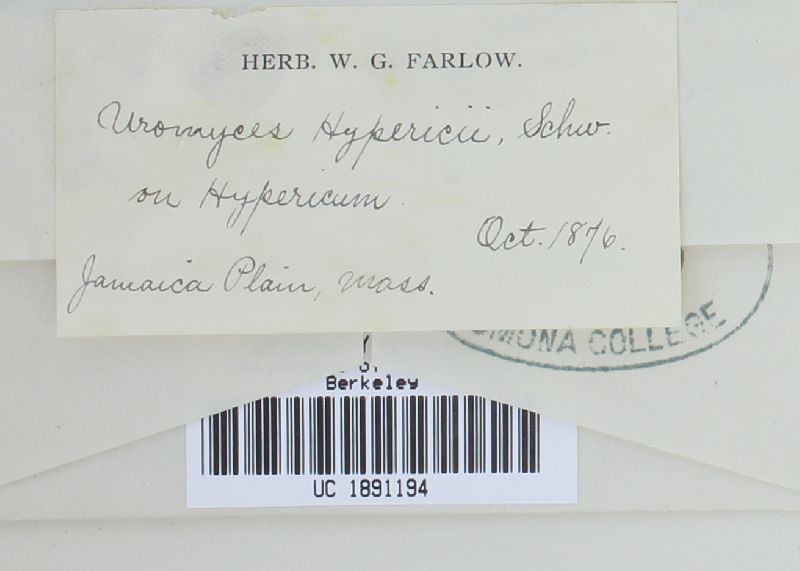 HERB. W. G. FARLOW.
Uromyces Hypericii, Schw.
on Hypericum.
Oct. 1876.
Jamaica Plain, Mass.
COLLEGE
Berkeley
UC 1891194